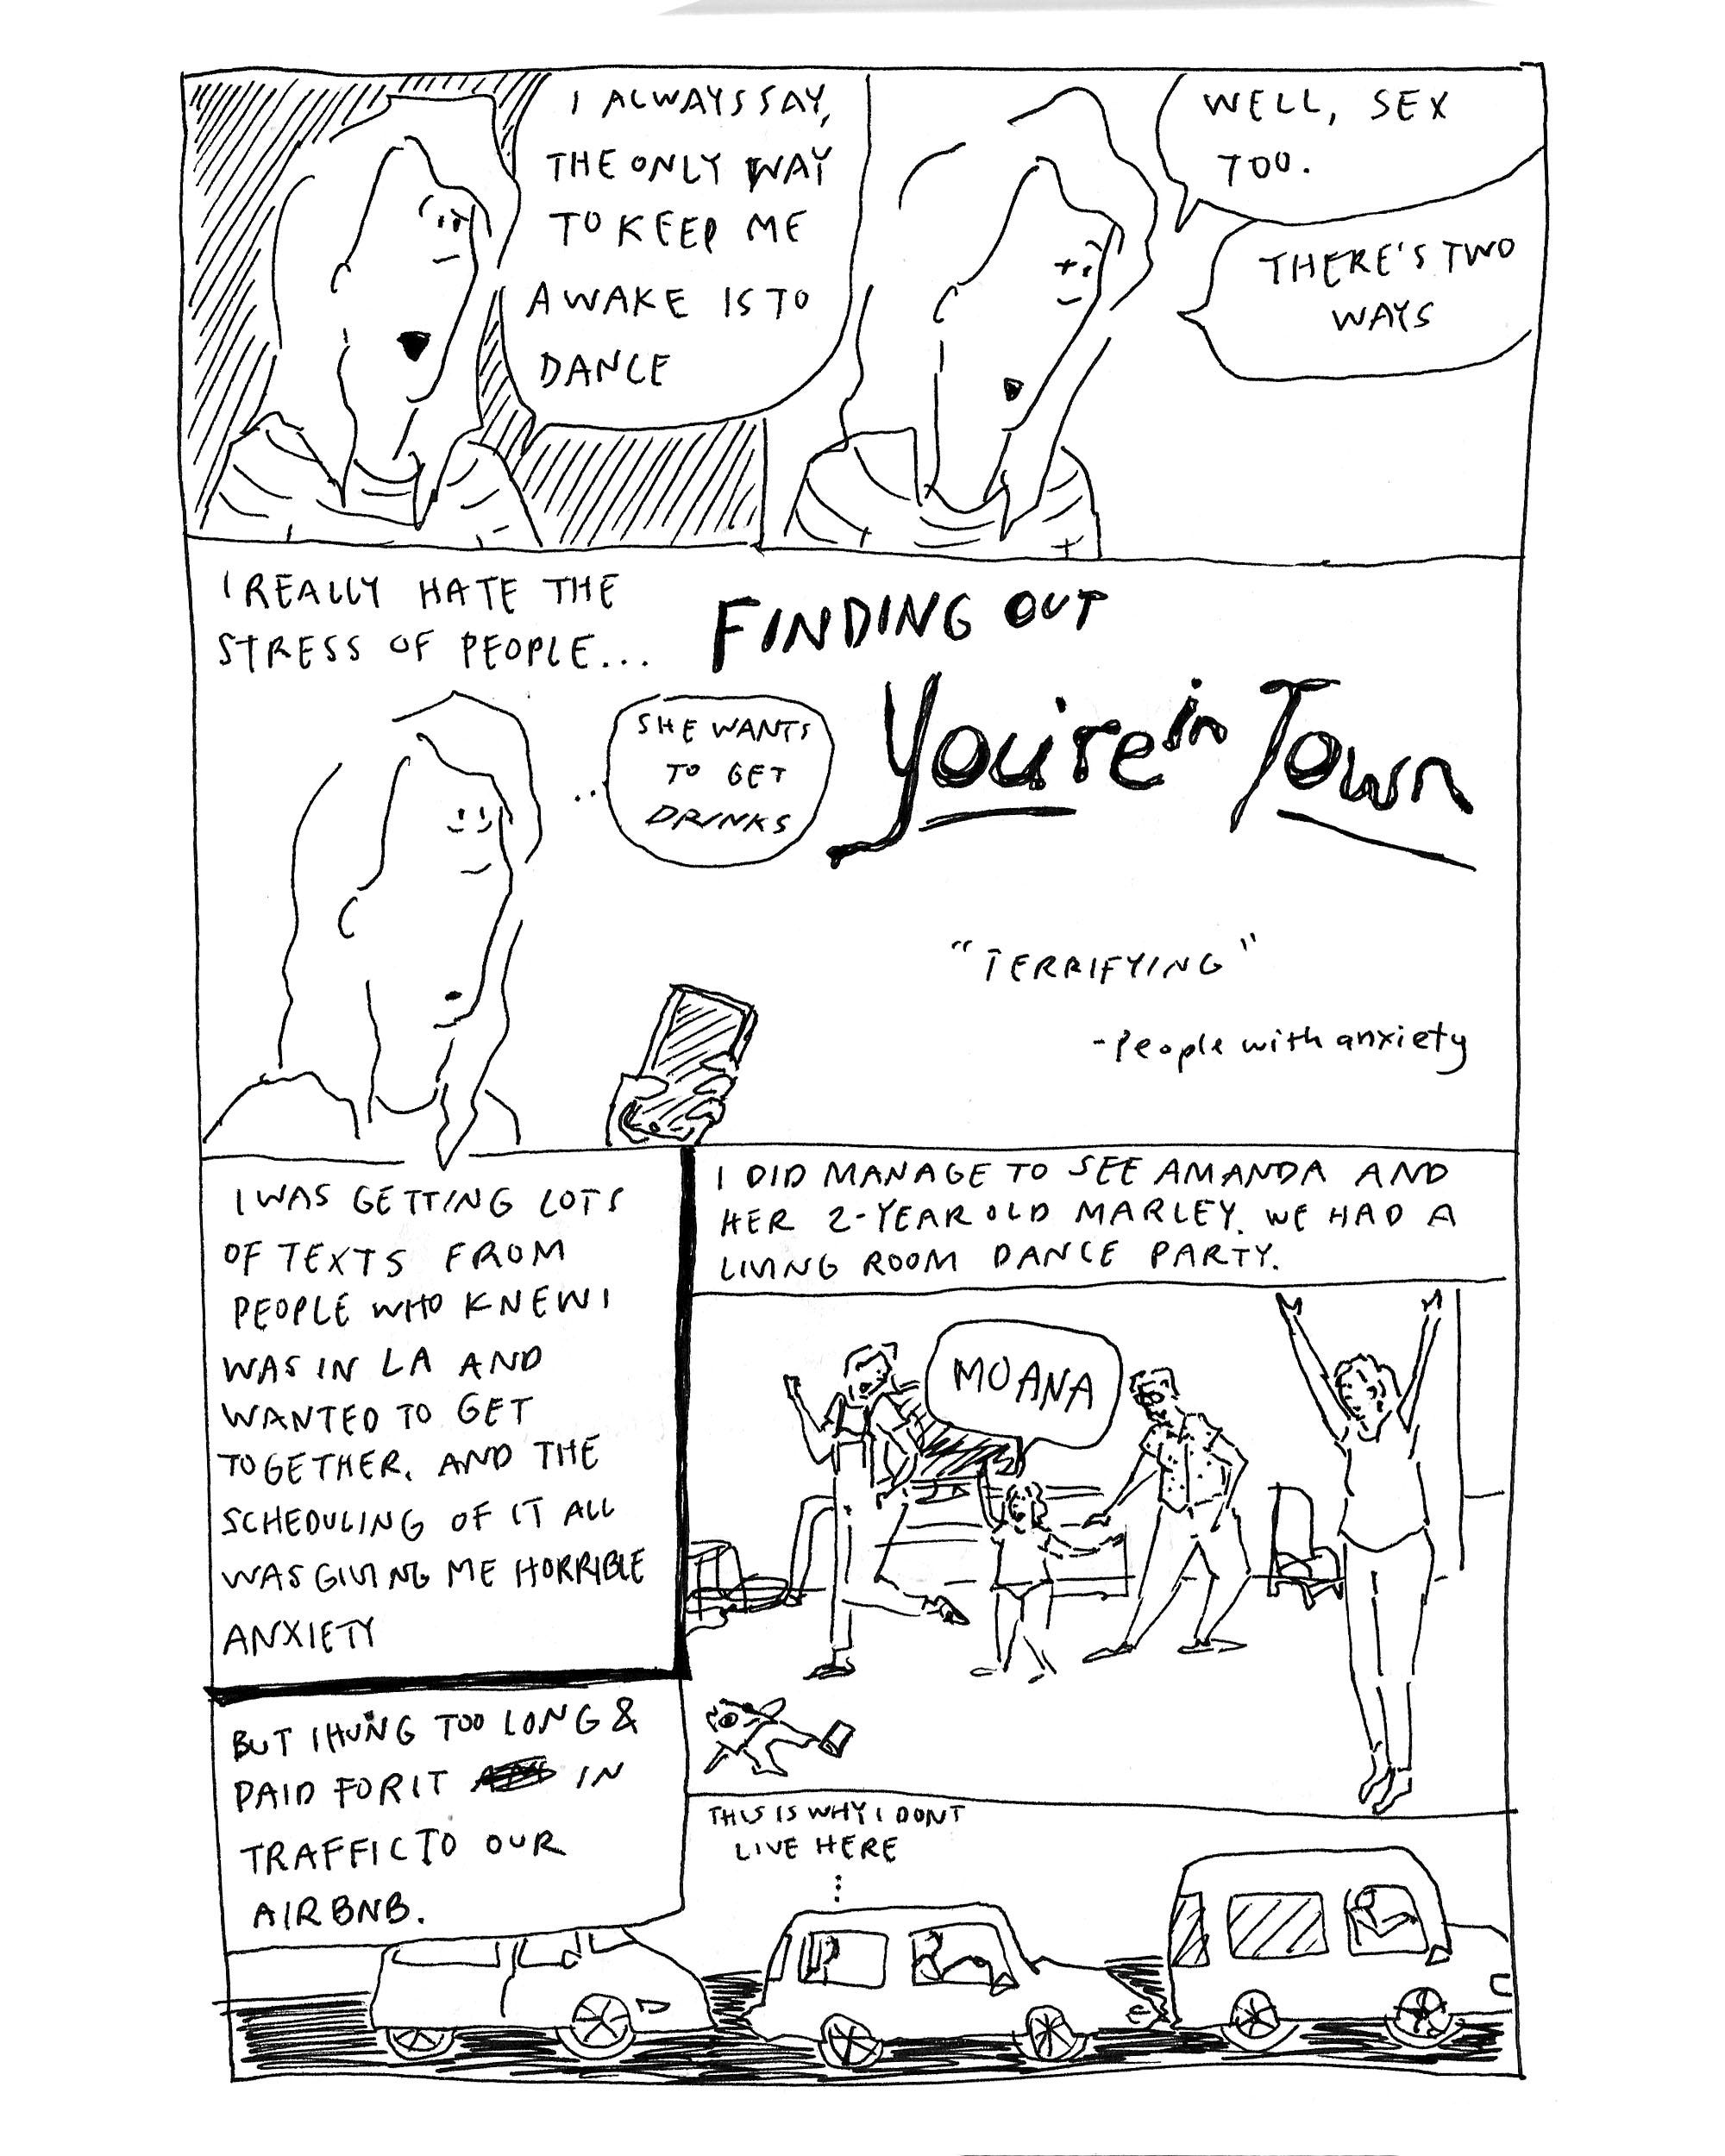 I ALWAYS SAY,
THE ONLY WAY
TO KEEP ME
AWAKE IS TO
DANCE
WELL, SEX
TOO.
THERE'S TWO
WAYS
I REALLY HATE THE
STRESS OF PEOPLE...
FINDING OUT
You're in Town
...
SHE WANTS
TO GET
DRINKS
"TERRIFYING"
- People with anxiety
I WAS GETTING LOTS
OF TEXTS FROM
PEOPLE WHO KNEW I
WAS IN LA AND
WANTED TO GET
TOGETHER. AND THE
SCHEDULING OF IT ALL
WAS GIVING ME HORRIBLE
ANXIETY
I DID MANAGE TO SEE AMANDA AND
HER 2-YEAR OLD MARLEY. WE HAD A
LIVING ROOM DANCE PARTY.
MOANA
BUT I HUNG TOO LONG &
PAID FOR IT IN
TRAFFIC TO OUR
AIRBNB.
THIS IS WHY I DONT
LIVE HERE